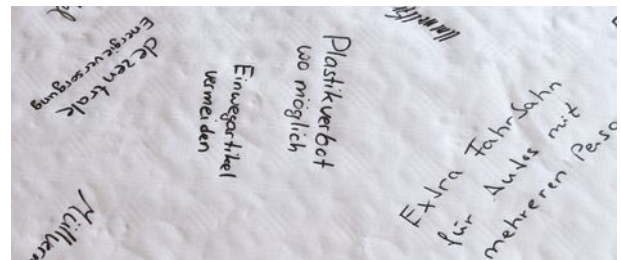 dezentrale
Energieversorgung
Einwegartikel
vermeiden
Plastikverbot
wo möglich
Extra Fahrbahn
für Autos mit
mehreren Perso
Müllverm